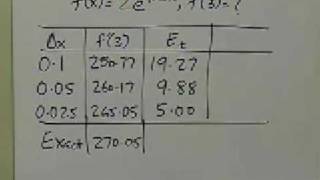 f(x) = 2e , f'(3) = ?
Δx f'(3) Et
0.1 250.77 19.27
0.05 260.17 9.88
0.025 265.05 5.00
Exact 270.05